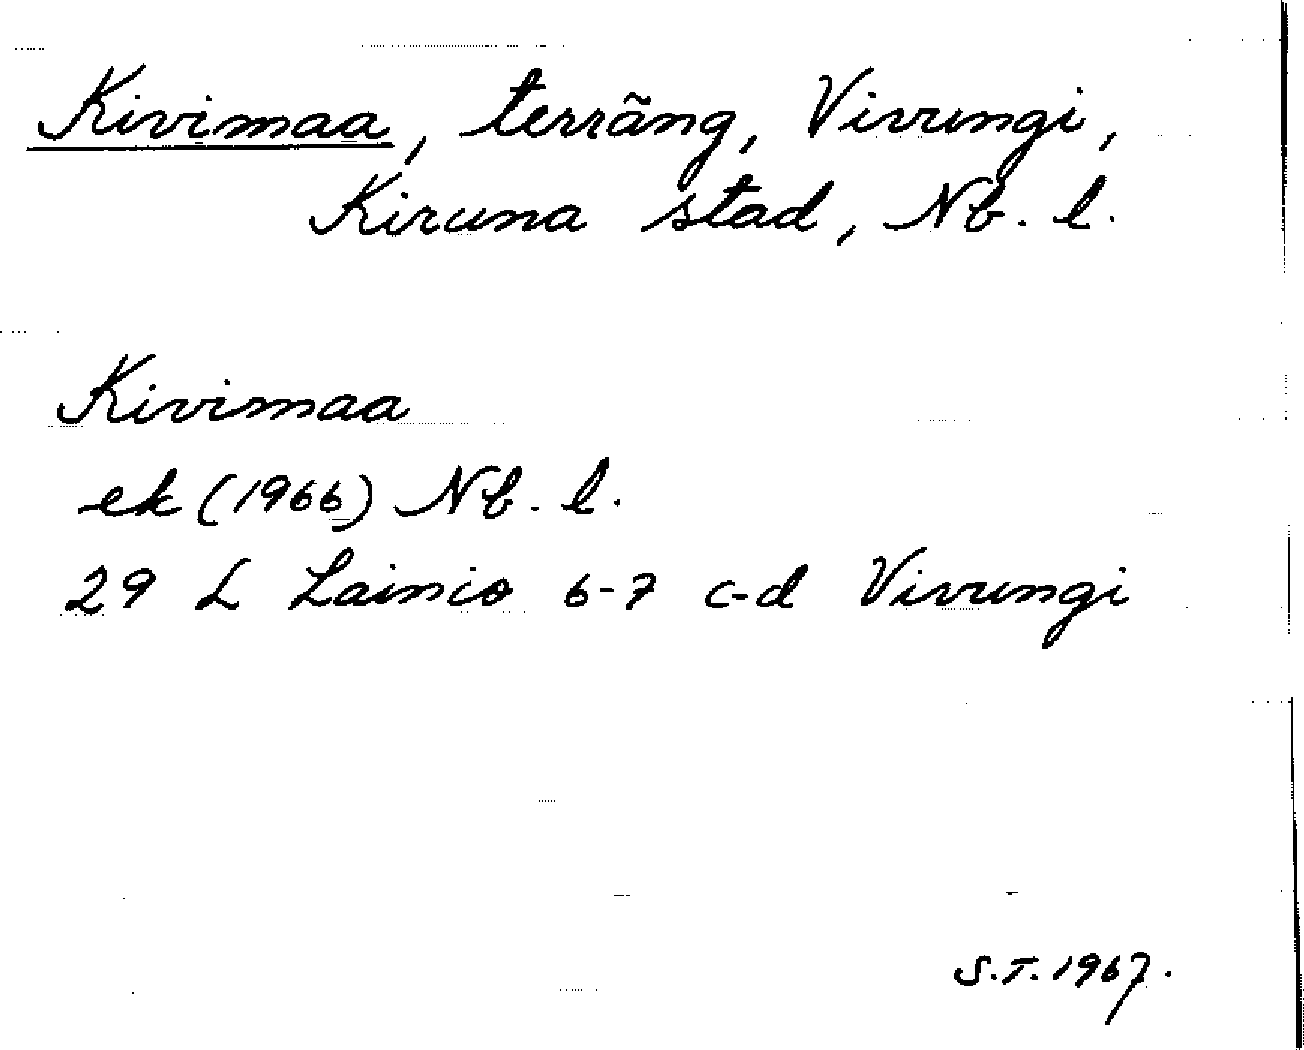 Kivimaa, terräng, Vivungi,
Kiruna stad, Nb. l.
Kivimaa
ek (1966) Nb. l.
29 L Lainio 6-7 c-d Vivungi
S.T. 1967.